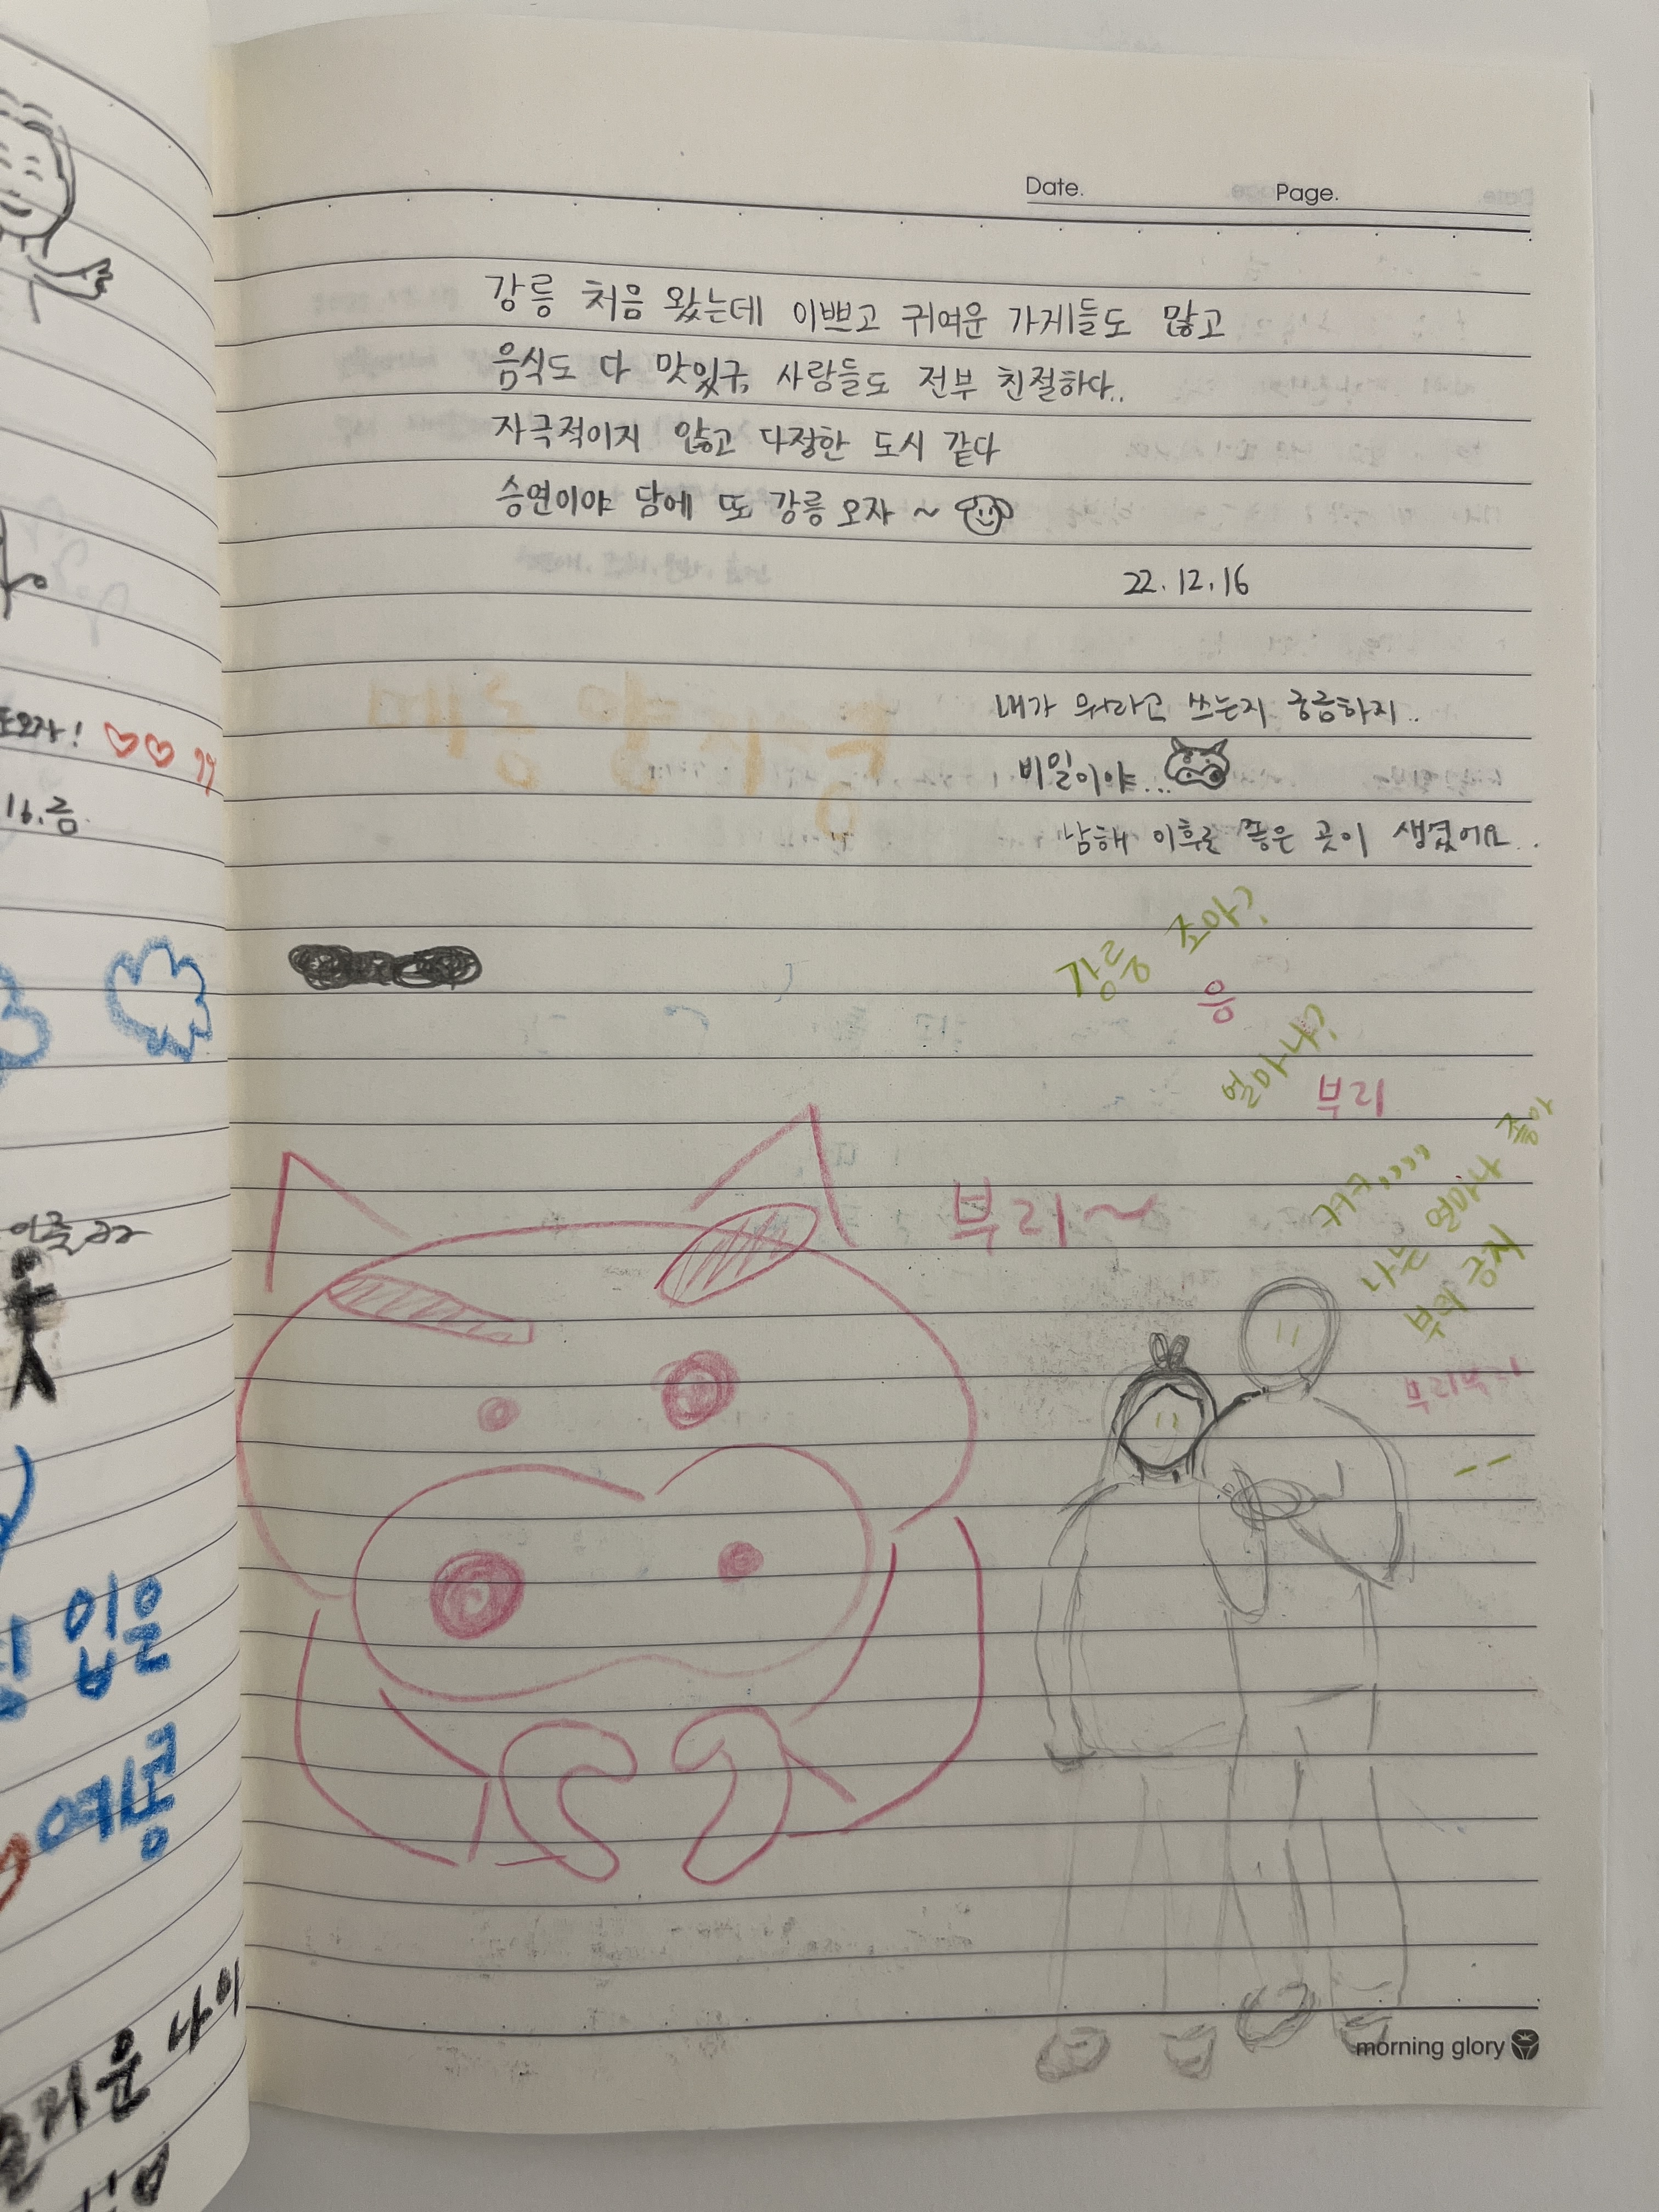 Date. Page.
강릉 처음 왔는데 이쁘고 귀여운 가게들도 많고
음식도 다 맛있구, 사람들도 전부 친절하다..
자극적이지 않고 다정한 도시 같다
승연이야 담에 또 강릉 오자 ~
22.12.16
내가 뭐라고 쓰는지 궁금하지..
비밀이야...
남해 이후로 좋은 곳이 생겼어요..
강릉 조아?
응
얼마나?
부리
부리~
나는 얼마나
morning glory
오자!
16.금
입은
나의